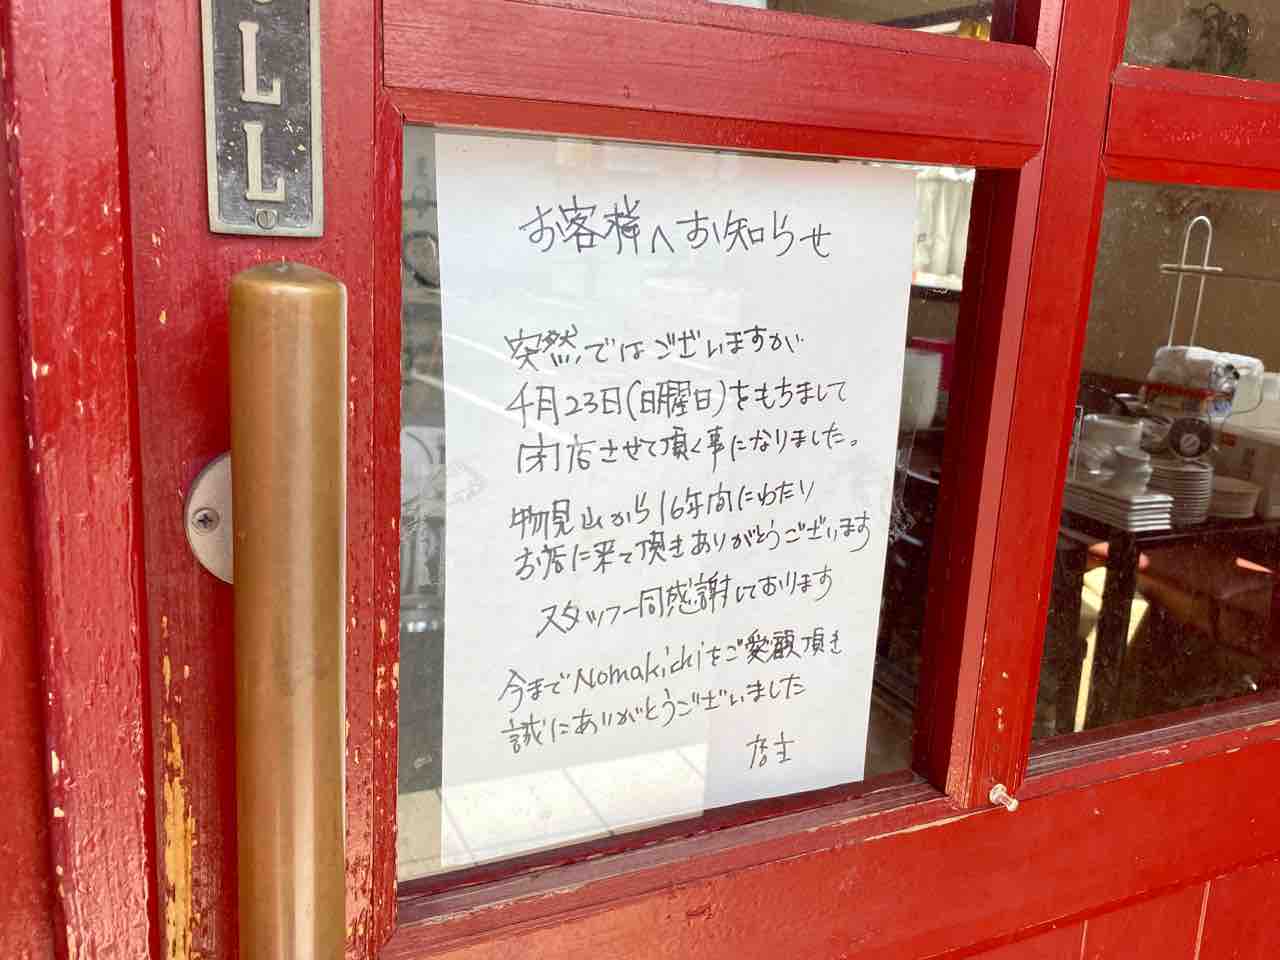 LL
お客様へお知らせ
突然ではございますが
4月23日(日曜日)をもちまして
閉店させて頂く事になりました。
物見山から16年間にわたり
お店に来て頂きありがとうございます
スタッフ一同感謝しております
今までNomakichiをご愛顧頂き
誠にありがとうございました
店主